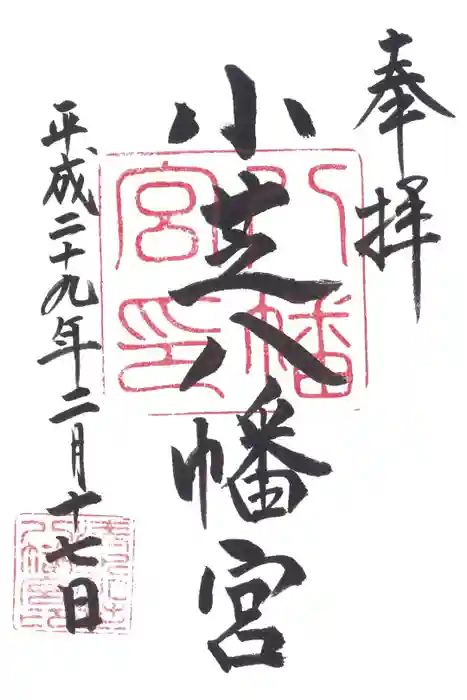 奉拝
小芝八幡宮
平成二十九年二月十七日
八幡宮印